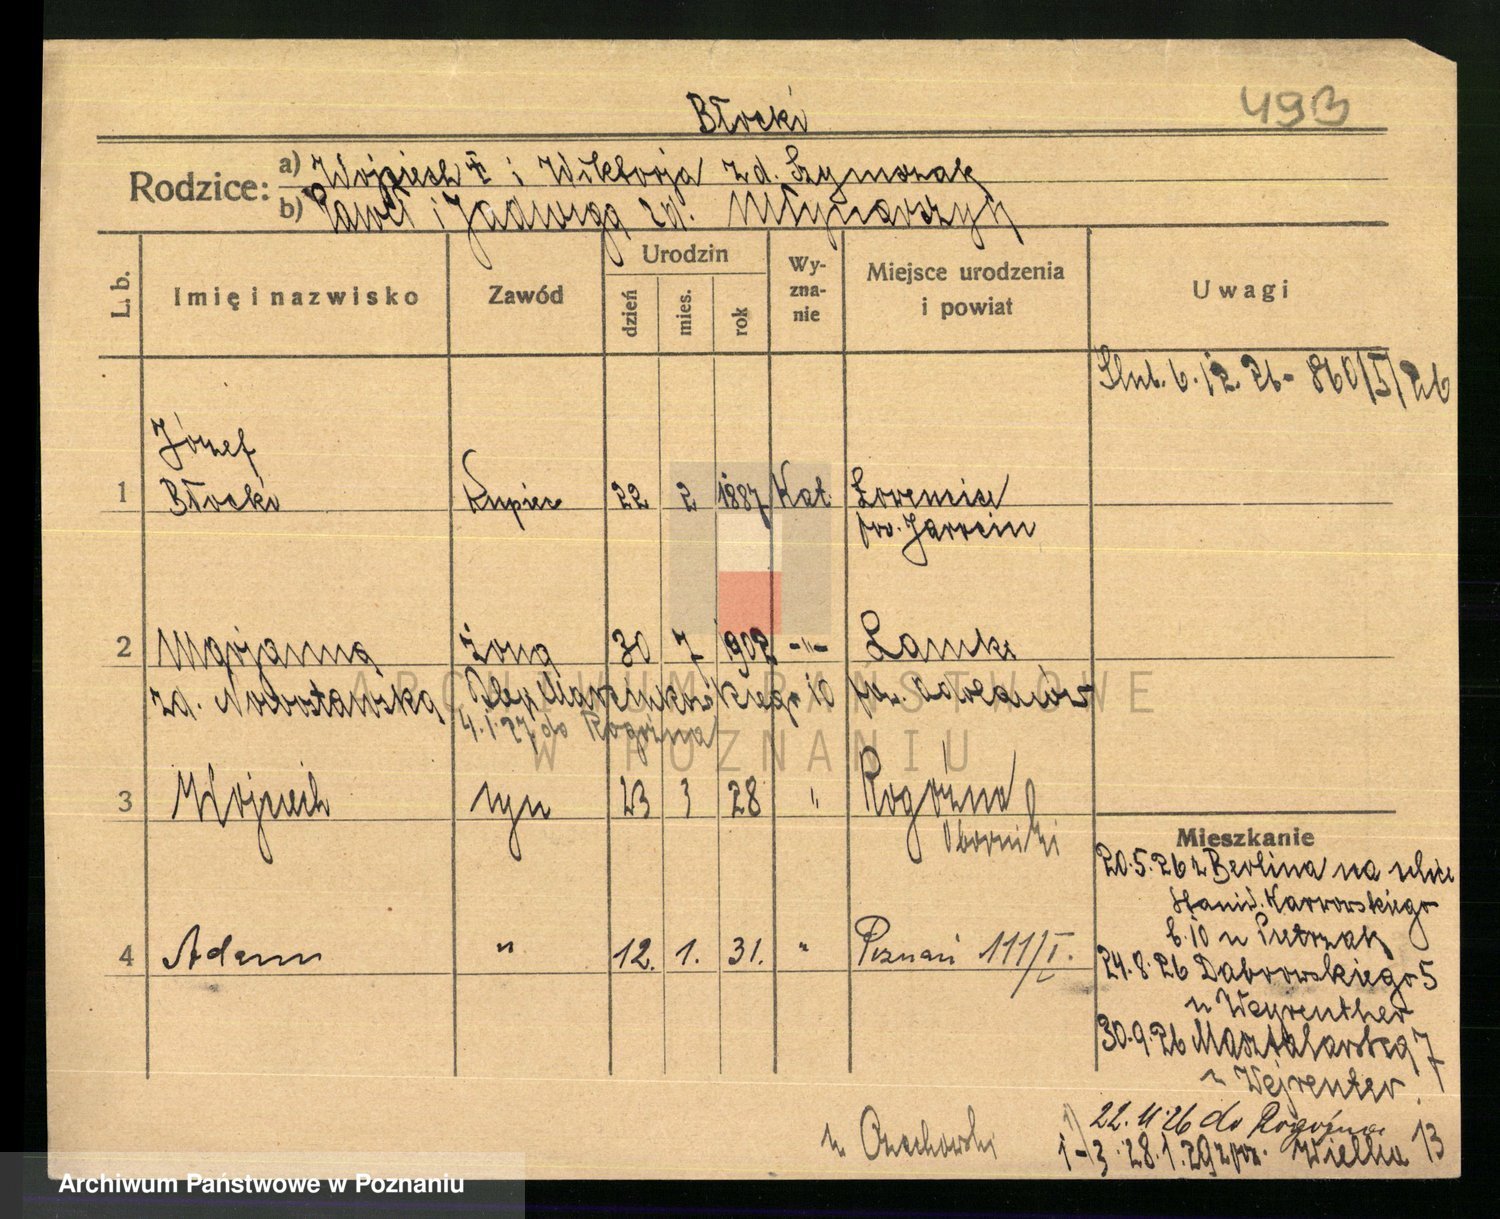 493
Błocki
Rodzice: a) Wojciech i Wiktorja zd. Szymczak
b) Paweł i Jadwiga zd. Młynarczyk
L. b.
Imię i nazwisko
Zawód
Urodzin
dzień
mies.
rok
Wy-
zna-
nie
Miejsce urodzenia
i powiat
Uwagi
Ślub. 6.12.26 - 860/5/26
Józef
1 Błocki Kupiec 22 2 1887 Kat.
pow. Jarocin
2 Marjanna żona 30 7 1902 -"- Lamki
zd. Nowostawska 10
4.1.27 do Rogoźna
3 Wojciech syn 23 28 " Rogoźno
Oborniki
4 Adam " 12. 1. 31. " Poznań 111/I.
Mieszkanie
20.5.26 z Berlina na ulicę
Stanisł. Karwowskiego
b. 10 u Pietrzak
24.8.26 Dąbrowskiego 5
u Weyrenther
30.9.26 Masztalarska 7
u Wejrenter
22.11.26 do Rogoźna
1-3 28.1.29 Wielka 13
u Orzechowski
ARCHIWUM PAŃSTWOWE
W POZNANIU
Archiwum Państwowe w Poznaniu